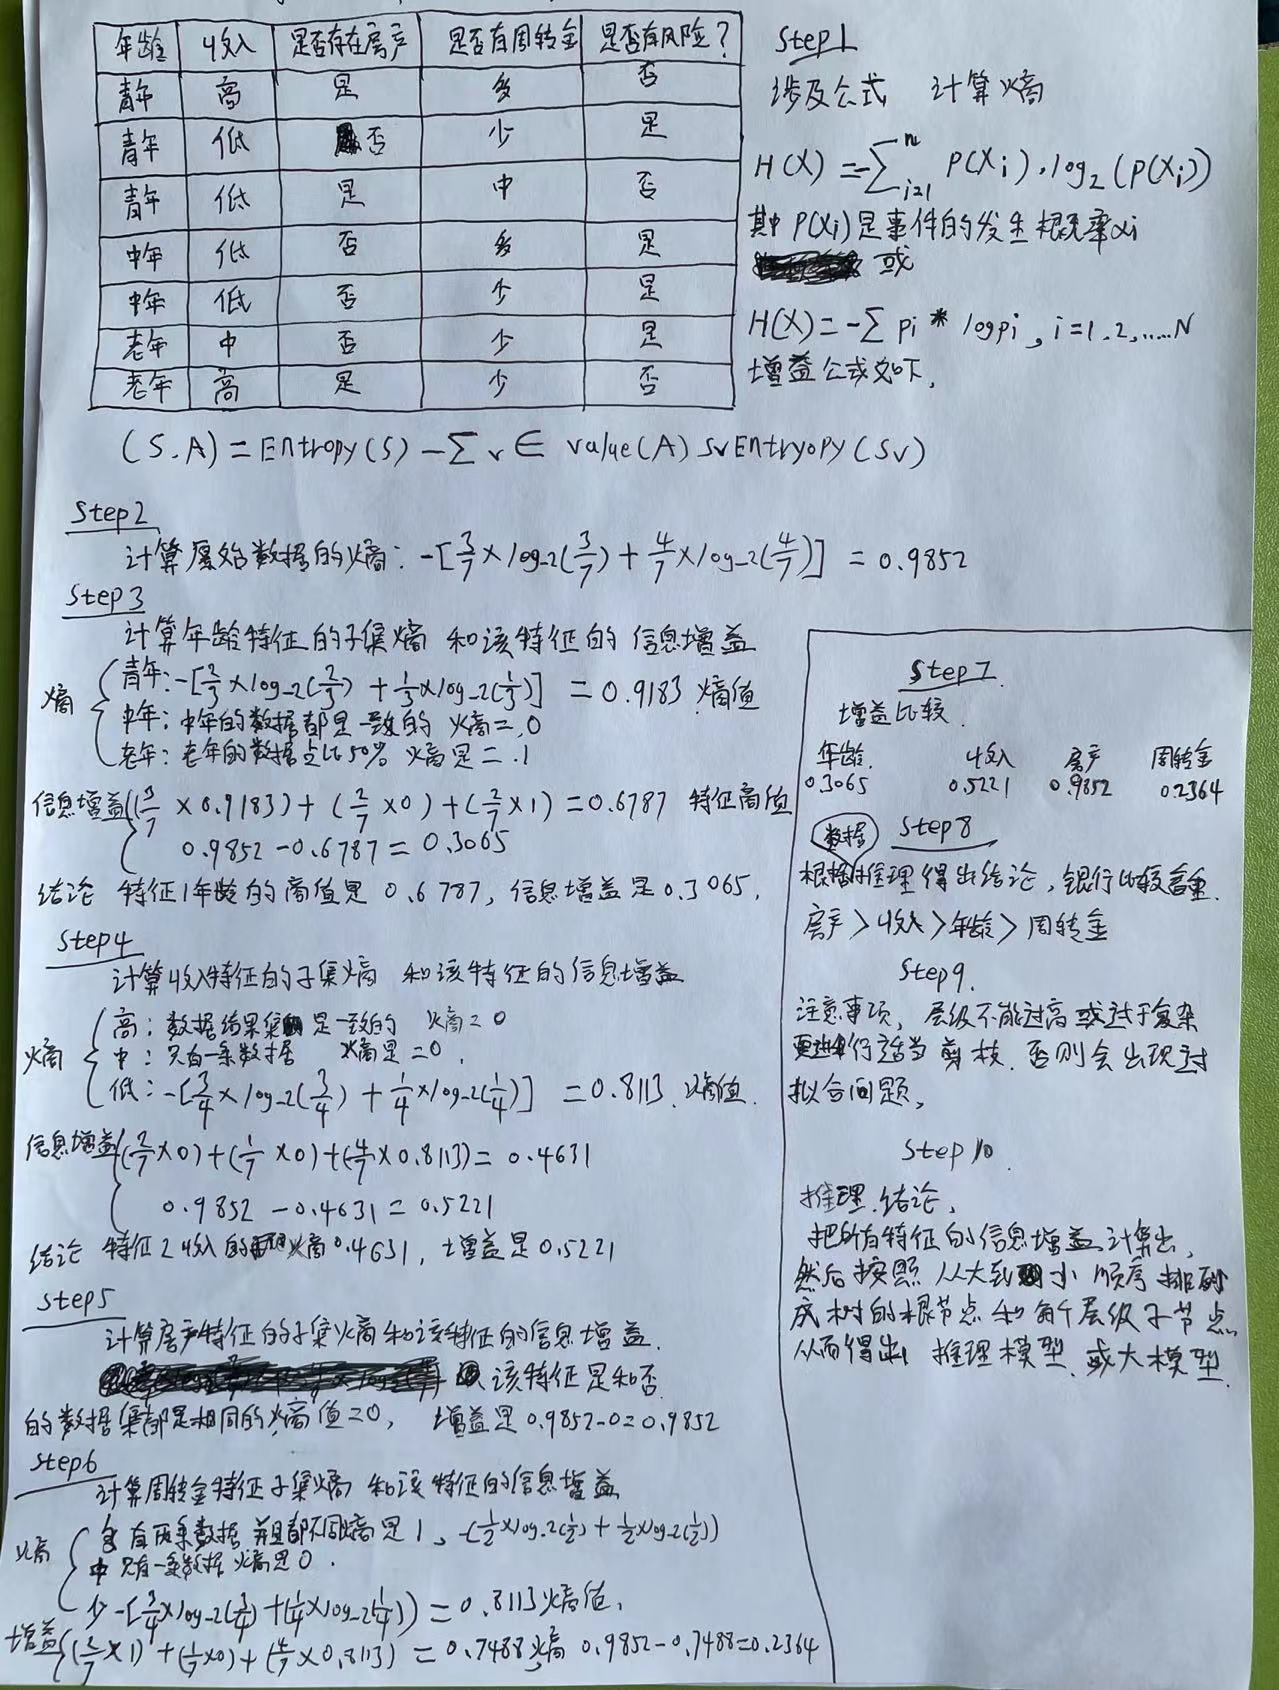 年龄 收入 是否存在房产 是否有周转金 是否有风险？
青年 高 是 多 否
青年 低 否 少 是
青年 低 是 中 否
中年 低 否 多 是
中年 低 否 少 是
老年 中 否 少 是
老年 高 是 少 否
Step1
涉及公式 计算熵
H(X) = -∑ⁿᵢ₌₁ P(Xi).log₂(P(Xi))
其中 P(Xi)是事件的发生概率xi
或
H(X)=-∑ pi * logpi, i=1.2,.....N
增益公式如下,
(S.A)=Entropy(S) -∑ v ∈ value(A) SvEntryopy(Sv)
Step2
计算原始数据的熵: -[3/7×log-2(3/7)+4/7×log-2(4/7)] =0.9852
Step3
计算年龄特征的子集熵 和该特征的 信息增益
熵
青年:-[2/3×log-2(2/3) +1/3×log-2(1/3)] =0.9183 熵值
中年: 中年的数据都是一致的 熵=.0
老年: 老年的数据占比50% 熵是=.1
信息增益(3/7 ×0.9183)+(2/7×0)+(2/7×1)=0.6787 特征商值
0.9852-0.6787=0.3065
结论 特征1年龄的商值是 0.6787, 信息增益是0.3065.
Step4
计算收入特征的子集熵 和该特征的信息增益
熵
高: 数据结果是一致的 熵=0
中: 只有一条数据 熵是=0.
低:-[3/4×log-2(3/4)+1/4×log-2(1/4)] =0.8113.熵值
信息增益(2/7×0)+(1/7×0)+(4/7×0.8113)=0.4631
0.9852-0.4631=0.5221
结论 特征2收入的熵0.4631, 增益是0.5221
Step5
计算房产特征的子集熵和该特征的信息增益.
该特征是和否
的数据集都是相同的,熵值=0, 增益是0.9852-0=0.9852
Step6
计算周转金特征子集熵 和该特征的信息增益
熵
多 有两条数据 并且都不同熵是1、-(1/2×log.2(1/2)+1/2×log-2(1/2))
中 只有一条数据 熵是0.
少-[3/4×log-2(3/4)+(1/4×log-2(1/4))=0.8113熵值,
增益(2/7×1)+(1/7×0)+(4/7×0.8113)=0.7488熵 0.9852-0.7488=0.2364
Step7
增益比较.
年龄. 收入 房产 周转金
0.3065 0.5221 0.9852 0.2364
数据 Step8
根据推理得出结论, 银行比较看重.
房产>收入>年龄>周转金
Step9.
注意事项, 层级不能过高或过于复杂
进行适当剪枝.否则会出现过
拟合问题,
Step10.
推理.结论,
把所有特征的信息增益计算出,
然后按照 从大到小 顺序 排列
成树的根节点和每个层级子节点..
从而得出 推理模型.或大模型.